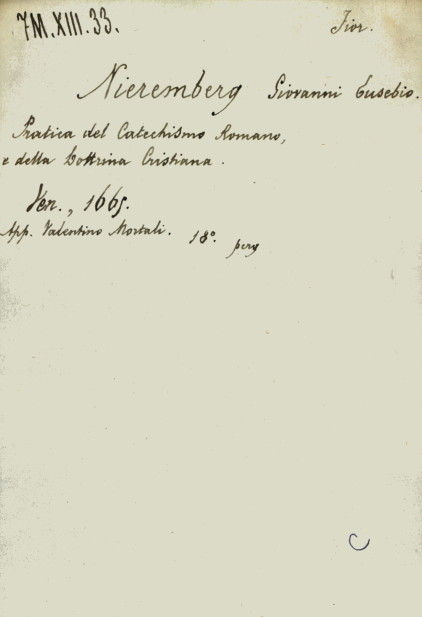 7M.XIII.33.
Fior.
Nieremberg Giovanni Eusebio.
Pratica del Catechismo Romano,
e della Dottrina Cristiana.
Ven., 1665.
App. Valentino Mortali. 18º. perg
C